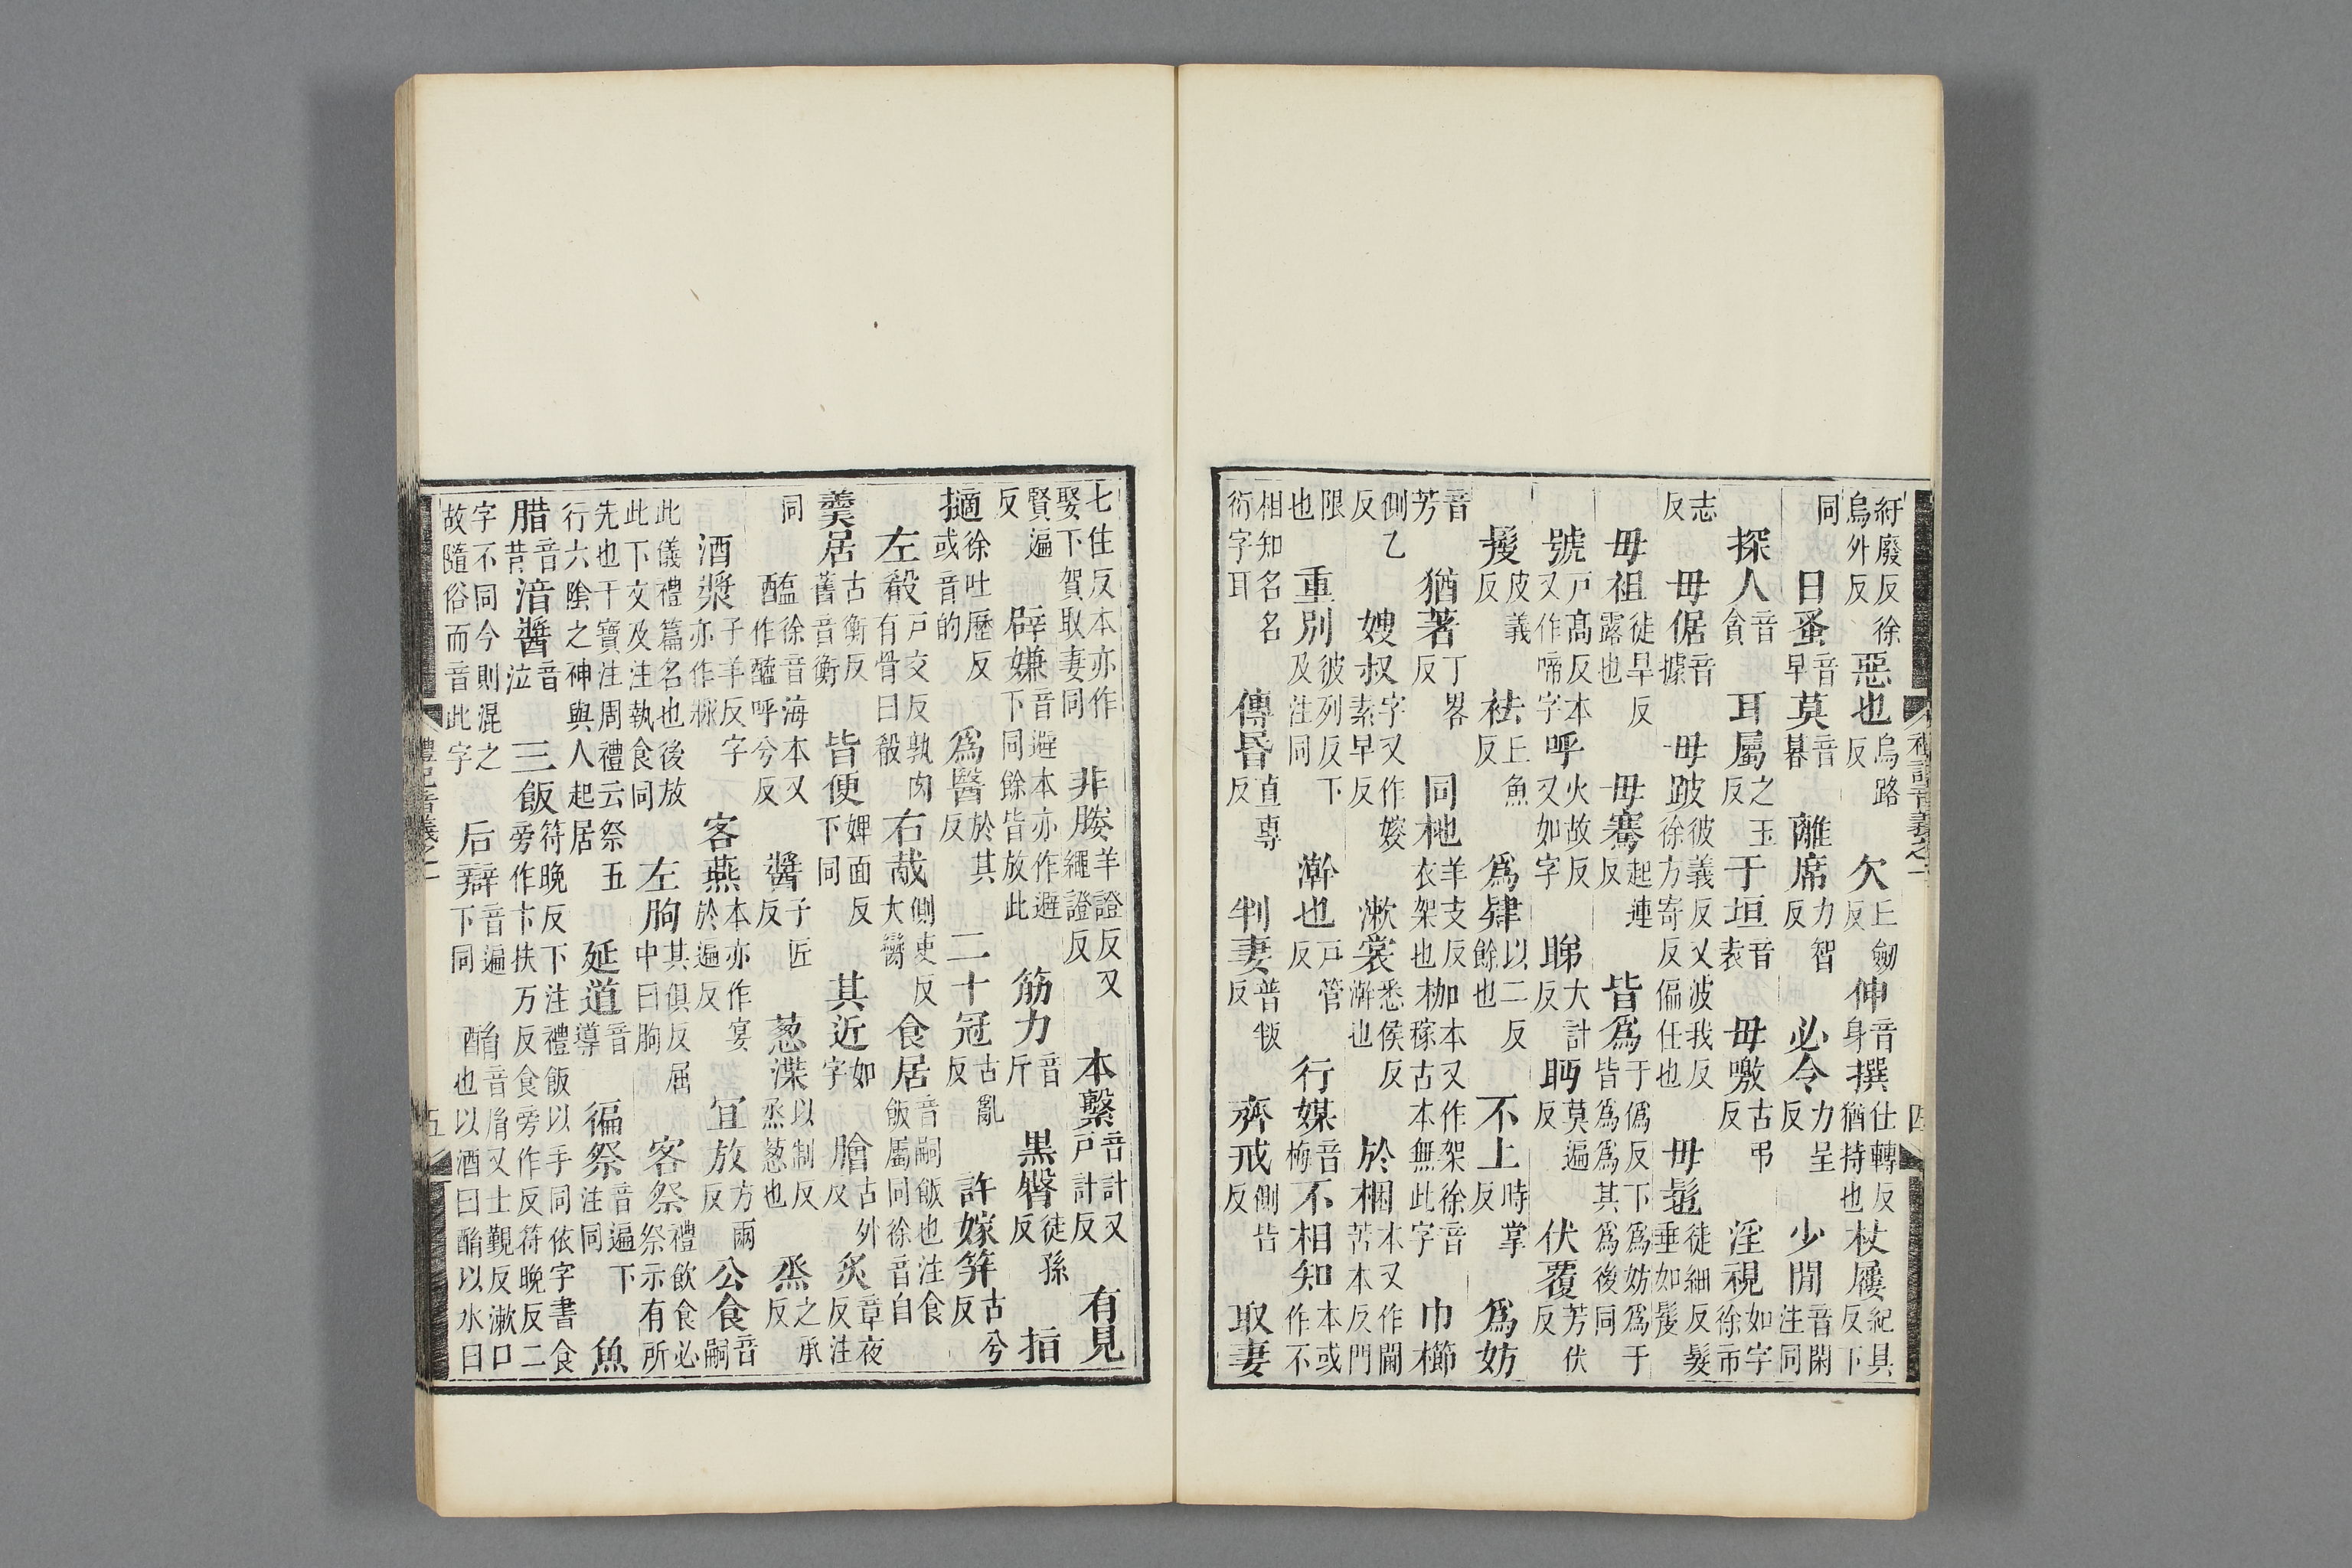 禮記音義之一 四
紆廢反徐烏外反 惡也烏路反 欠丘劒反 伸音身 撰仕轉反猶持也 杖屨紀具反下
同 日蚤音早 莫音暮 離席力智反 必令力呈反 少閒音閑注同
探人音貪 耳屬之玉反 于垣音袁 毋噭古弔反 淫視如字徐市
志反 毋倨音據 毋跛彼義反又波我反徐方寄反偏任也 毋髢徒細反髮垂如髲
毋袒徒旱反露也 毋褰起連反 皆爲于僞反下爲妨爲于皆爲爲其爲後同
號戶高反本又作啼字 呼火故反又如字 睇大計反 眄莫遍反 伏覆芳伏反
髲皮義反 袪丘魚反 爲肄以二反餘也 不上時掌反 爲妨
音芳 猶著丁畧反 同椸羊支反衣架也 枷本又作架徐音稼古本無此字 巾櫛
側乙反 嫂叔字又作㛮素早反 漱裳悉侯反澣也 於梱本又作閫苦本反門
限也 重別彼列反下及注同 澣也戶管反 行媒音梅 不相知本或作不
相知名名衍字耳 傳昬直專反 判妻普叛反 齊戒側皆反 取妻
七住反本亦作娶下賀取妻同 非媵羊證反又繩證反 本繫音計又戶計反 有見
賢遍反 辟嫌音避本亦作避下同餘皆放此 筋力音斤 黑臀徒孫反 指
擿徐吐歷反或音的 爲醫於其反 二十冠古亂反 許嫁笄古兮反
左殽戶交反孰肉有骨曰殽 右胾側吏反大臠 食居音嗣飯也注食飯屬同徐音自
羹居古衡反舊音衡 皆便婢面反下同 其近如字 膾古外反 炙章夜反注
同 醢徐音海本又作醯呼兮反 醬子匠反 葱渫以制反烝葱也 烝之承反
酒漿子羊反字亦作𤖅 客燕本亦作宴於遍反 宜放方兩反 公食音嗣
此儀禮篇名也後放此下文及注執食同 左朐其俱反屈中曰朐 客祭禮飲食必祭示有所
先也干寶注周禮云祭五行六陰之神與人起居 延道音導 徧祭音遍下注同 魚
腊音昔 湆醬音泣 三飯符晚反下注禮飯以手同依字書食旁作卞扶万反食旁作反符晚反二
字不同今則混之故隨俗而音此字 后辯音遍下同 酳音胤又士覲反漱口也以酒曰酳以水曰
禮記音義之一 五